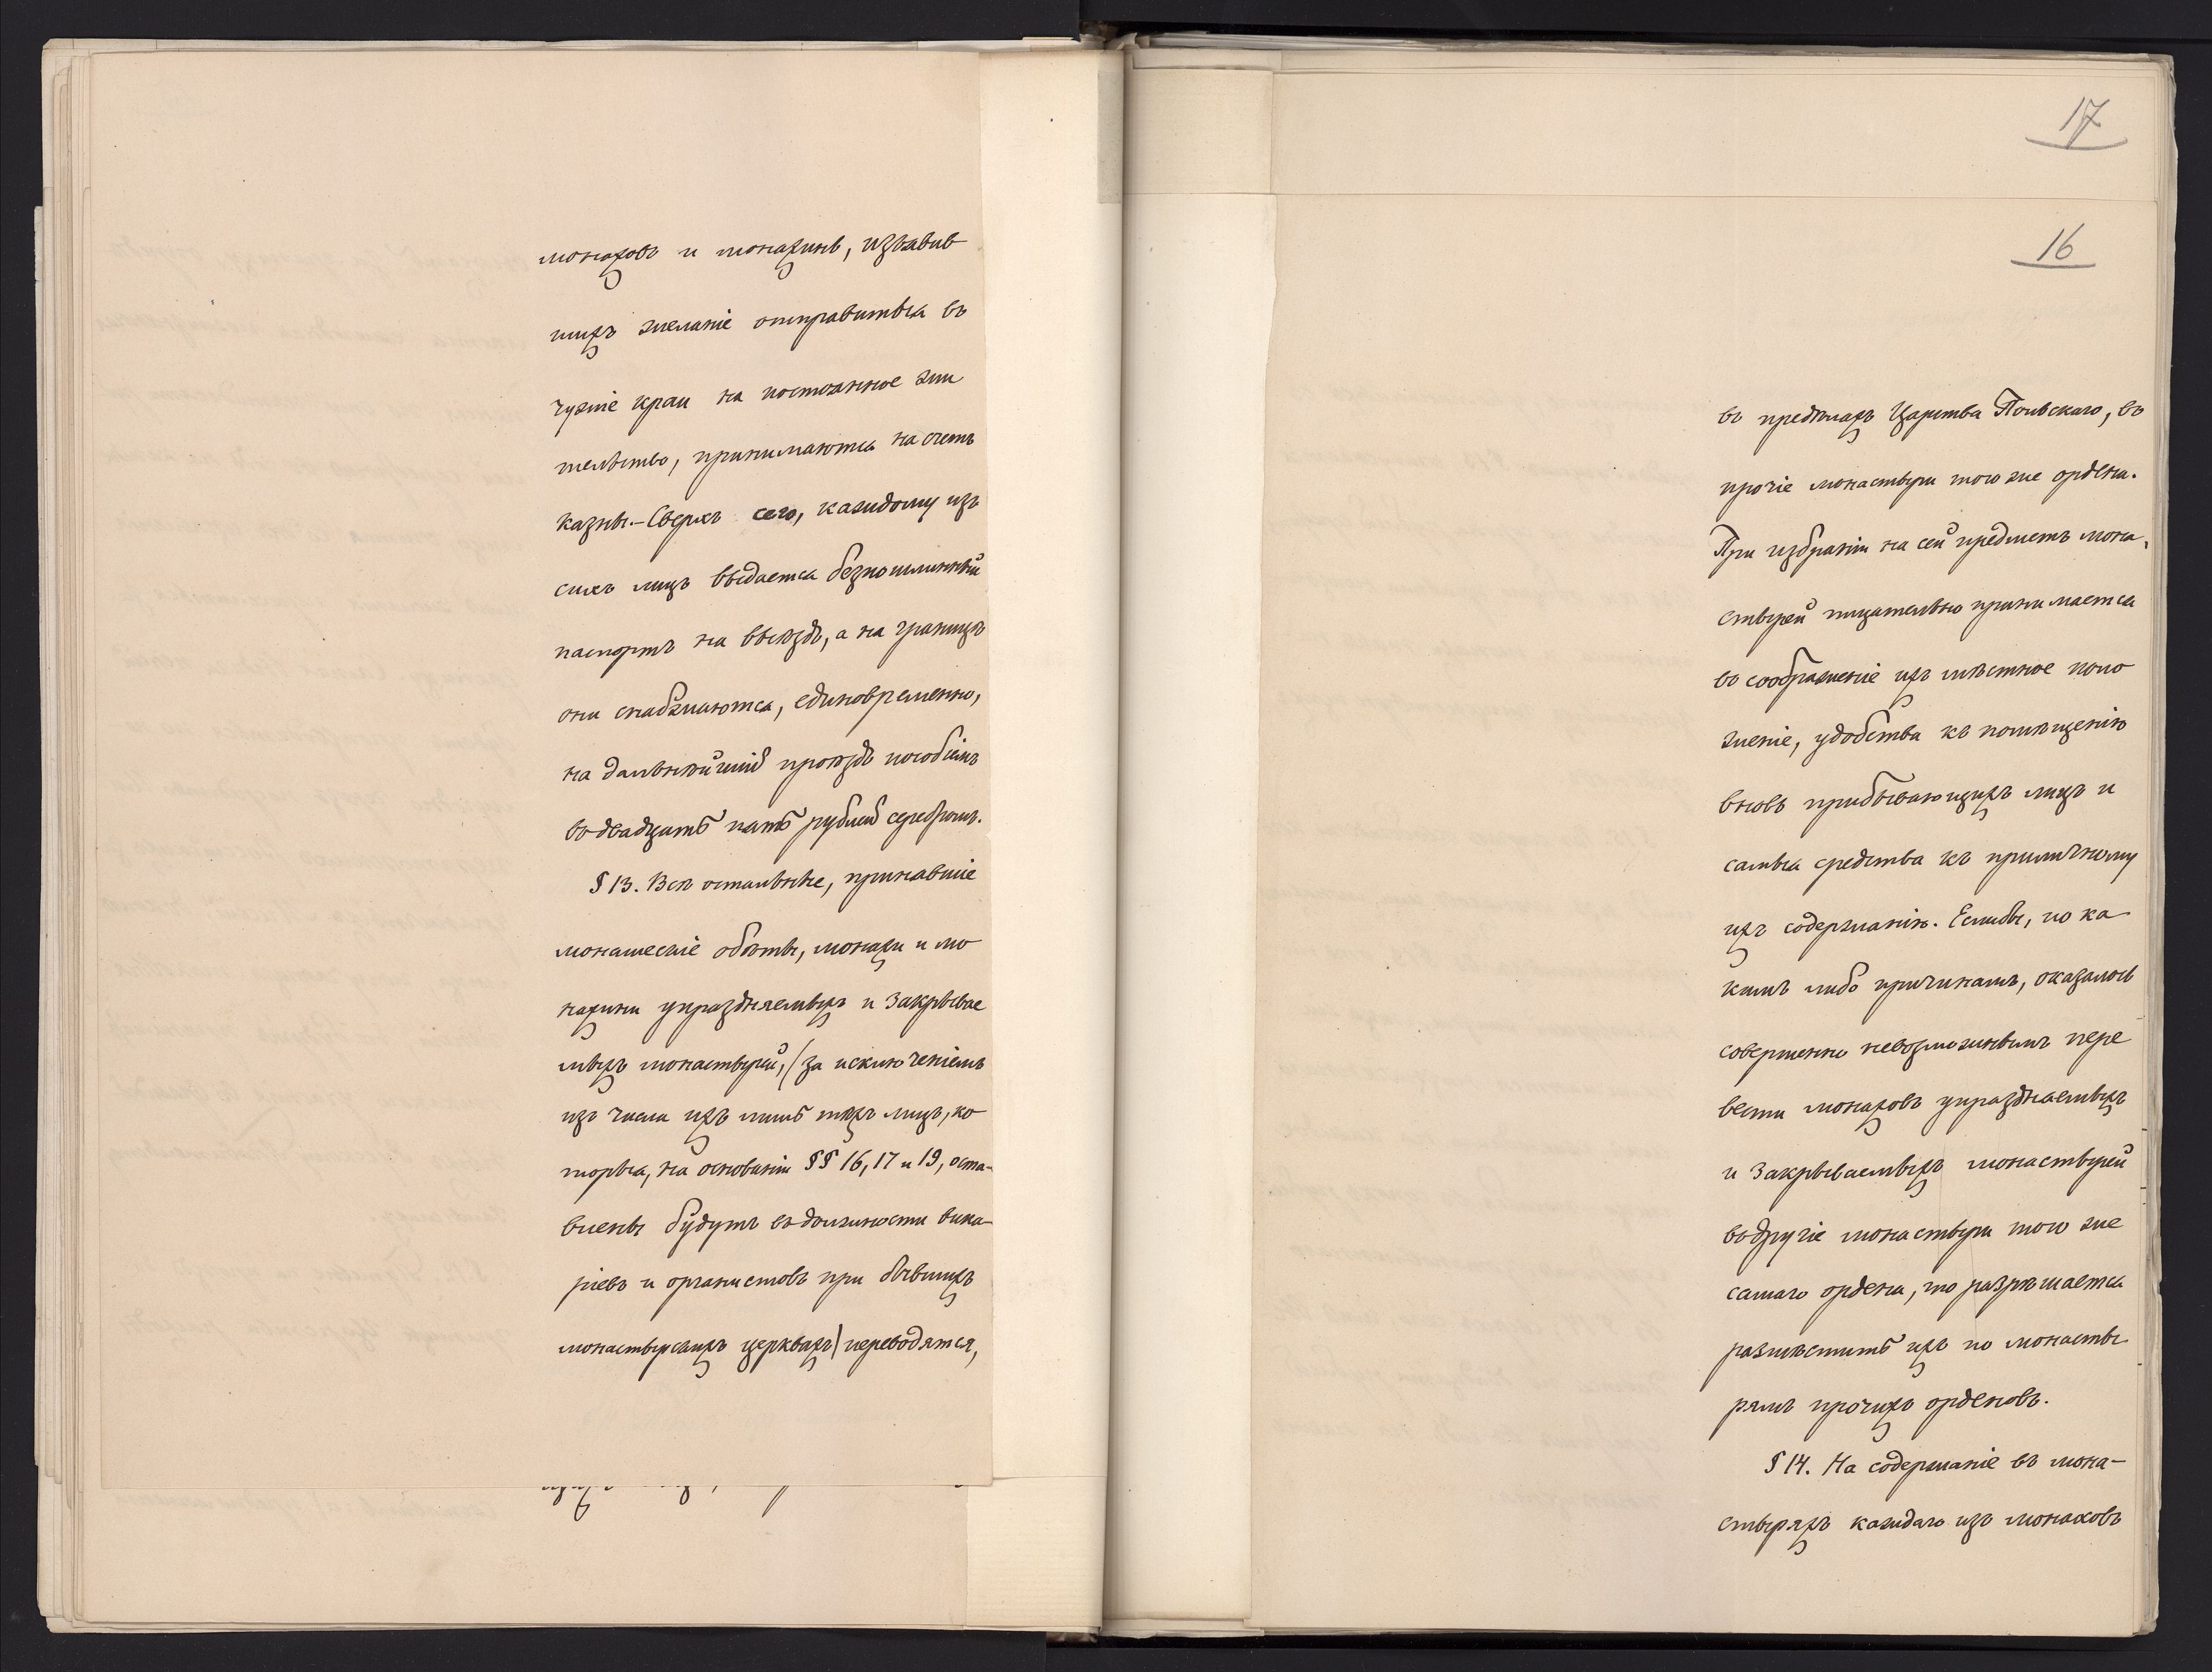 монаховъ и монахинь, изъявив
шихъ желаніе отправиться въ
чужіе краи на постоянное жи
тельство, принимаются на счетъ
казны.- Сверхъ сего, каждому изъ
сихъ лицъ выдается безпошлинный
паспортъ на выѣздъ, а на границѣ
они снабжаются, единовременно,
на дальнѣйшій проѣздъ пособіемъ
въ двадцать пять рублей серебромъ.
§ 13. Всѣ остальные, принявшіе
монашескіе обѣты, монахи и мо
нахини упраздняемыхъ и закрывае
мыхъ монастырей, (за исключеніемъ
изъ числа ихъ лишь тѣхъ лицъ, ко
торыя, на основаніи §§ 16, 17 и 19, оста-
влены будутъ въ должности вика-
ріевъ и органистовъ при бывшихъ
монастырскихъ церквахъ) переводятся,
17
16
въ предѣлахъ Царства Польскаго, въ
прочіе монастыри того же ордена.
При избраніи на сей предметъ мона-
стырей тщательно принимается
въ соображеніе ихъ мѣстное поло
женіе, удобства къ помѣщенію
вновь прибывающихъ лицъ и
самыя средства къ приличному
ихъ содержанію. Еслибы, по ка
кимъ либо причинамъ, оказалось
совершенно невозможнымъ пере
вести монаховъ упраздняемыхъ
и закрываемыхъ монастырей
въ другіе монастыри того же
самаго ордена, то разрѣшается
размѣстить ихъ по монасты
рямъ прочихъ орденовъ.
§ 14. На содержаніе въ мона-
стыряхъ каждаго изъ монаховъ